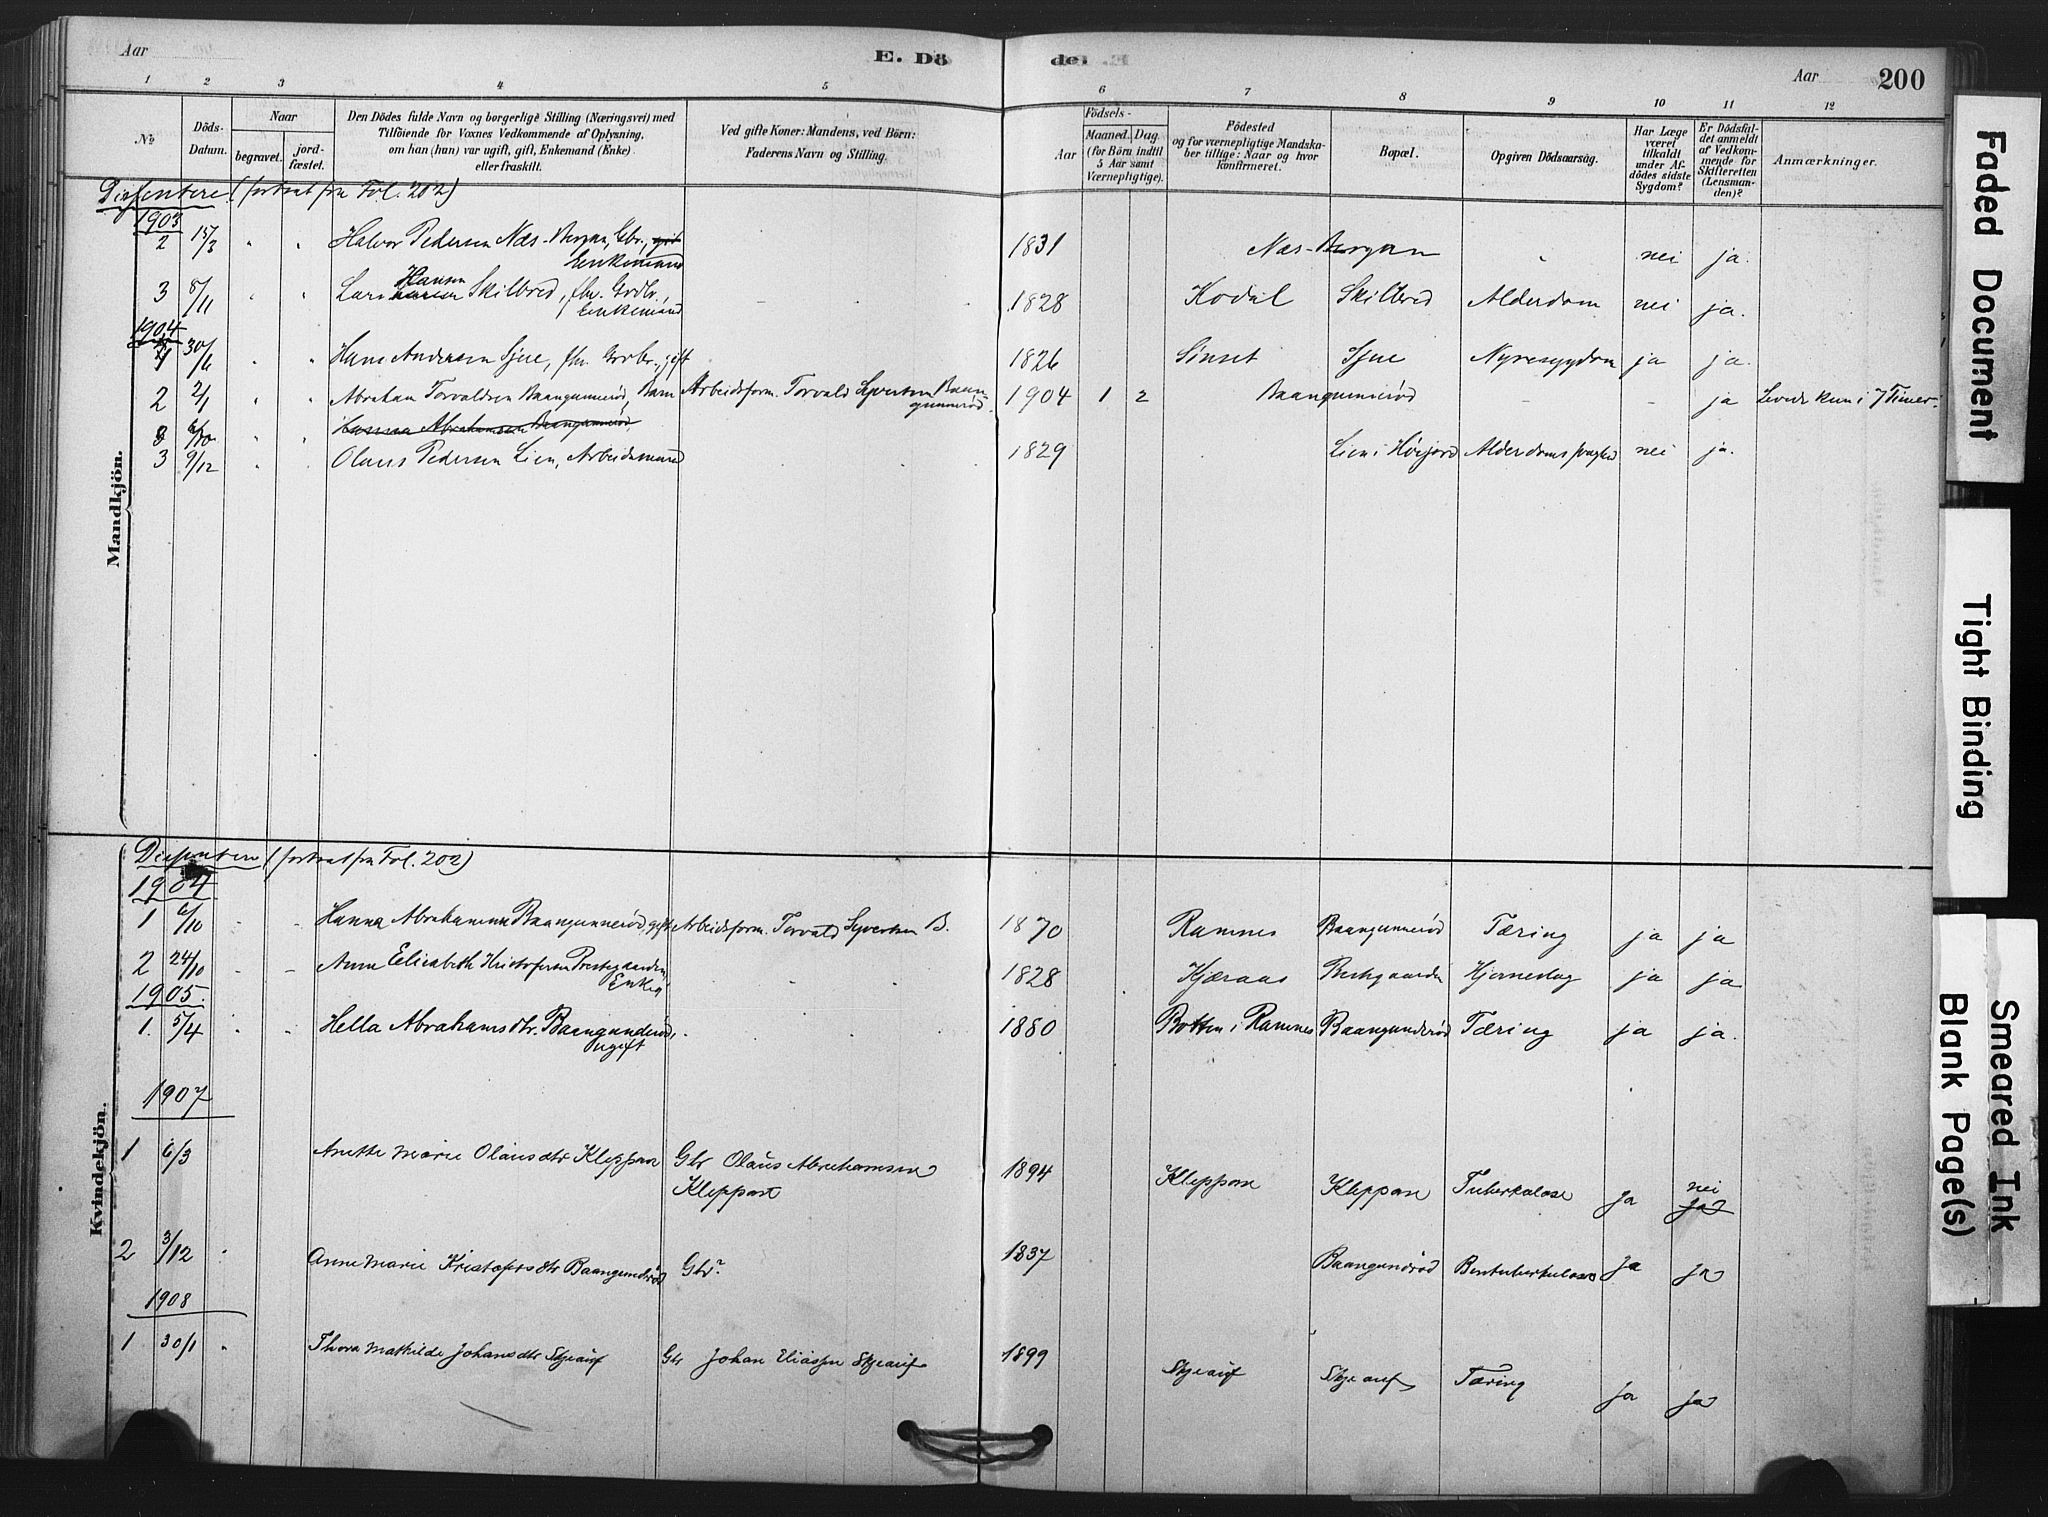 Aar
E. Dö
de. E.
Aar
200
1 2 3 4 5 6 7 8 9 10 11 12
№ Döds-Datum. Naar begravet. jord-fæstet. Den Dödes fulde Navn og borgerlige Stilling (Næringsvei) med Tilföiende for Voxnes Vedkommende af Oplysning, om han (hun) var ugift, gift, Enkemand (Enke) eller fraskilt. Ved gifte Koner: Mandens, ved Börn: Faderens Navn og Stilling. Födsels- Aar Maaned. Dag. (for Börn indtil 5 Aar samt Værnepligtige). Födested og for værnepligtige Mandskaber tillige: Naar og hvor konfirmeret. Bopæl. Opgiven Dödsaarsag. Har Læge været tilkaldt under Afdödes sidste Sygdom? Er Dödsfaldet anmeldt af Vedkommende for Skifteretten (Lensmanden)? Anmærkninger.
Mandkjön.
Dissentere (fortsat fra Fol. 202)
1903
2 15/3 " " Halvor Pedersen Næs-Bergan, Gbr., gift Enkemand 1831 Næs-Bergan " nei ja.
3 8/11 " " Lars Hansen Skilbred, fhv. Grdbr., Enkemand - - 1828 Kodal Skilbred Alderdom nei ja.
1904
1 30/6 " " Hans Andersen Sjue, fhv. Grdbr., gift 1826 Sinset Sjue Nyresygdom ja ja.
2 2/1 " " Abraham Torvaldsen Baangunnerød, Barn Arbeidsform. Torvald Syvertsen Baangunnerød. 1904 1 2 Baangunnerød - - ja Levede kun i 7 Timer.
3 6/10 " " Hanna Abrahamsen Baangunnerød,
3 9/12 " " Olaus Pedersen Lien, Arbeidsmand 1829 Lien i Høijord Alderdomssvaghed nei ja.
Kvindekjön.
Dissentere (fortsat fra Fol. 202)
1904
1 6/10 " " Hanna Abrahamsen Baangunnerød, gift Arbeidsform. Torvald Syvertsen B. 1870 Ramnes Baangunnerød Tæring ja ja
2 24/10 " " Anne Elisabeth Kristofersen Prestegaarden, Enke " " 1828 Kjæraas Prestegaarden Hjerneslag ja ja
1905.
1. 5/4 " " Hella Abrahamsdtr. Baangunderød, ugift " 1880 Botten i Ramnes Baangunderød Tæring ja ja.
1907
1 6/3 Anette Marie Olausdtr Kleppan Gbr Olaus Abrahamsen Kleppan 1894 Kleppan Kleppan Tuberkulose Ja nei Ja
2 3/12 " Anne Marie Kristofersdtr Baangundrød Gbr? 1837 Baangundrød Bentuberkulose Ja Ja
1908
1 30/1 " Thora Mathilde Johansdtr Skjeauf Gbr Johan Eliassen Skjeauf 1899 Skjeauf Skjeauf Tæring Ja Ja
Faded Document
Tight Binding
Smeared Ink
Blank Page(s)